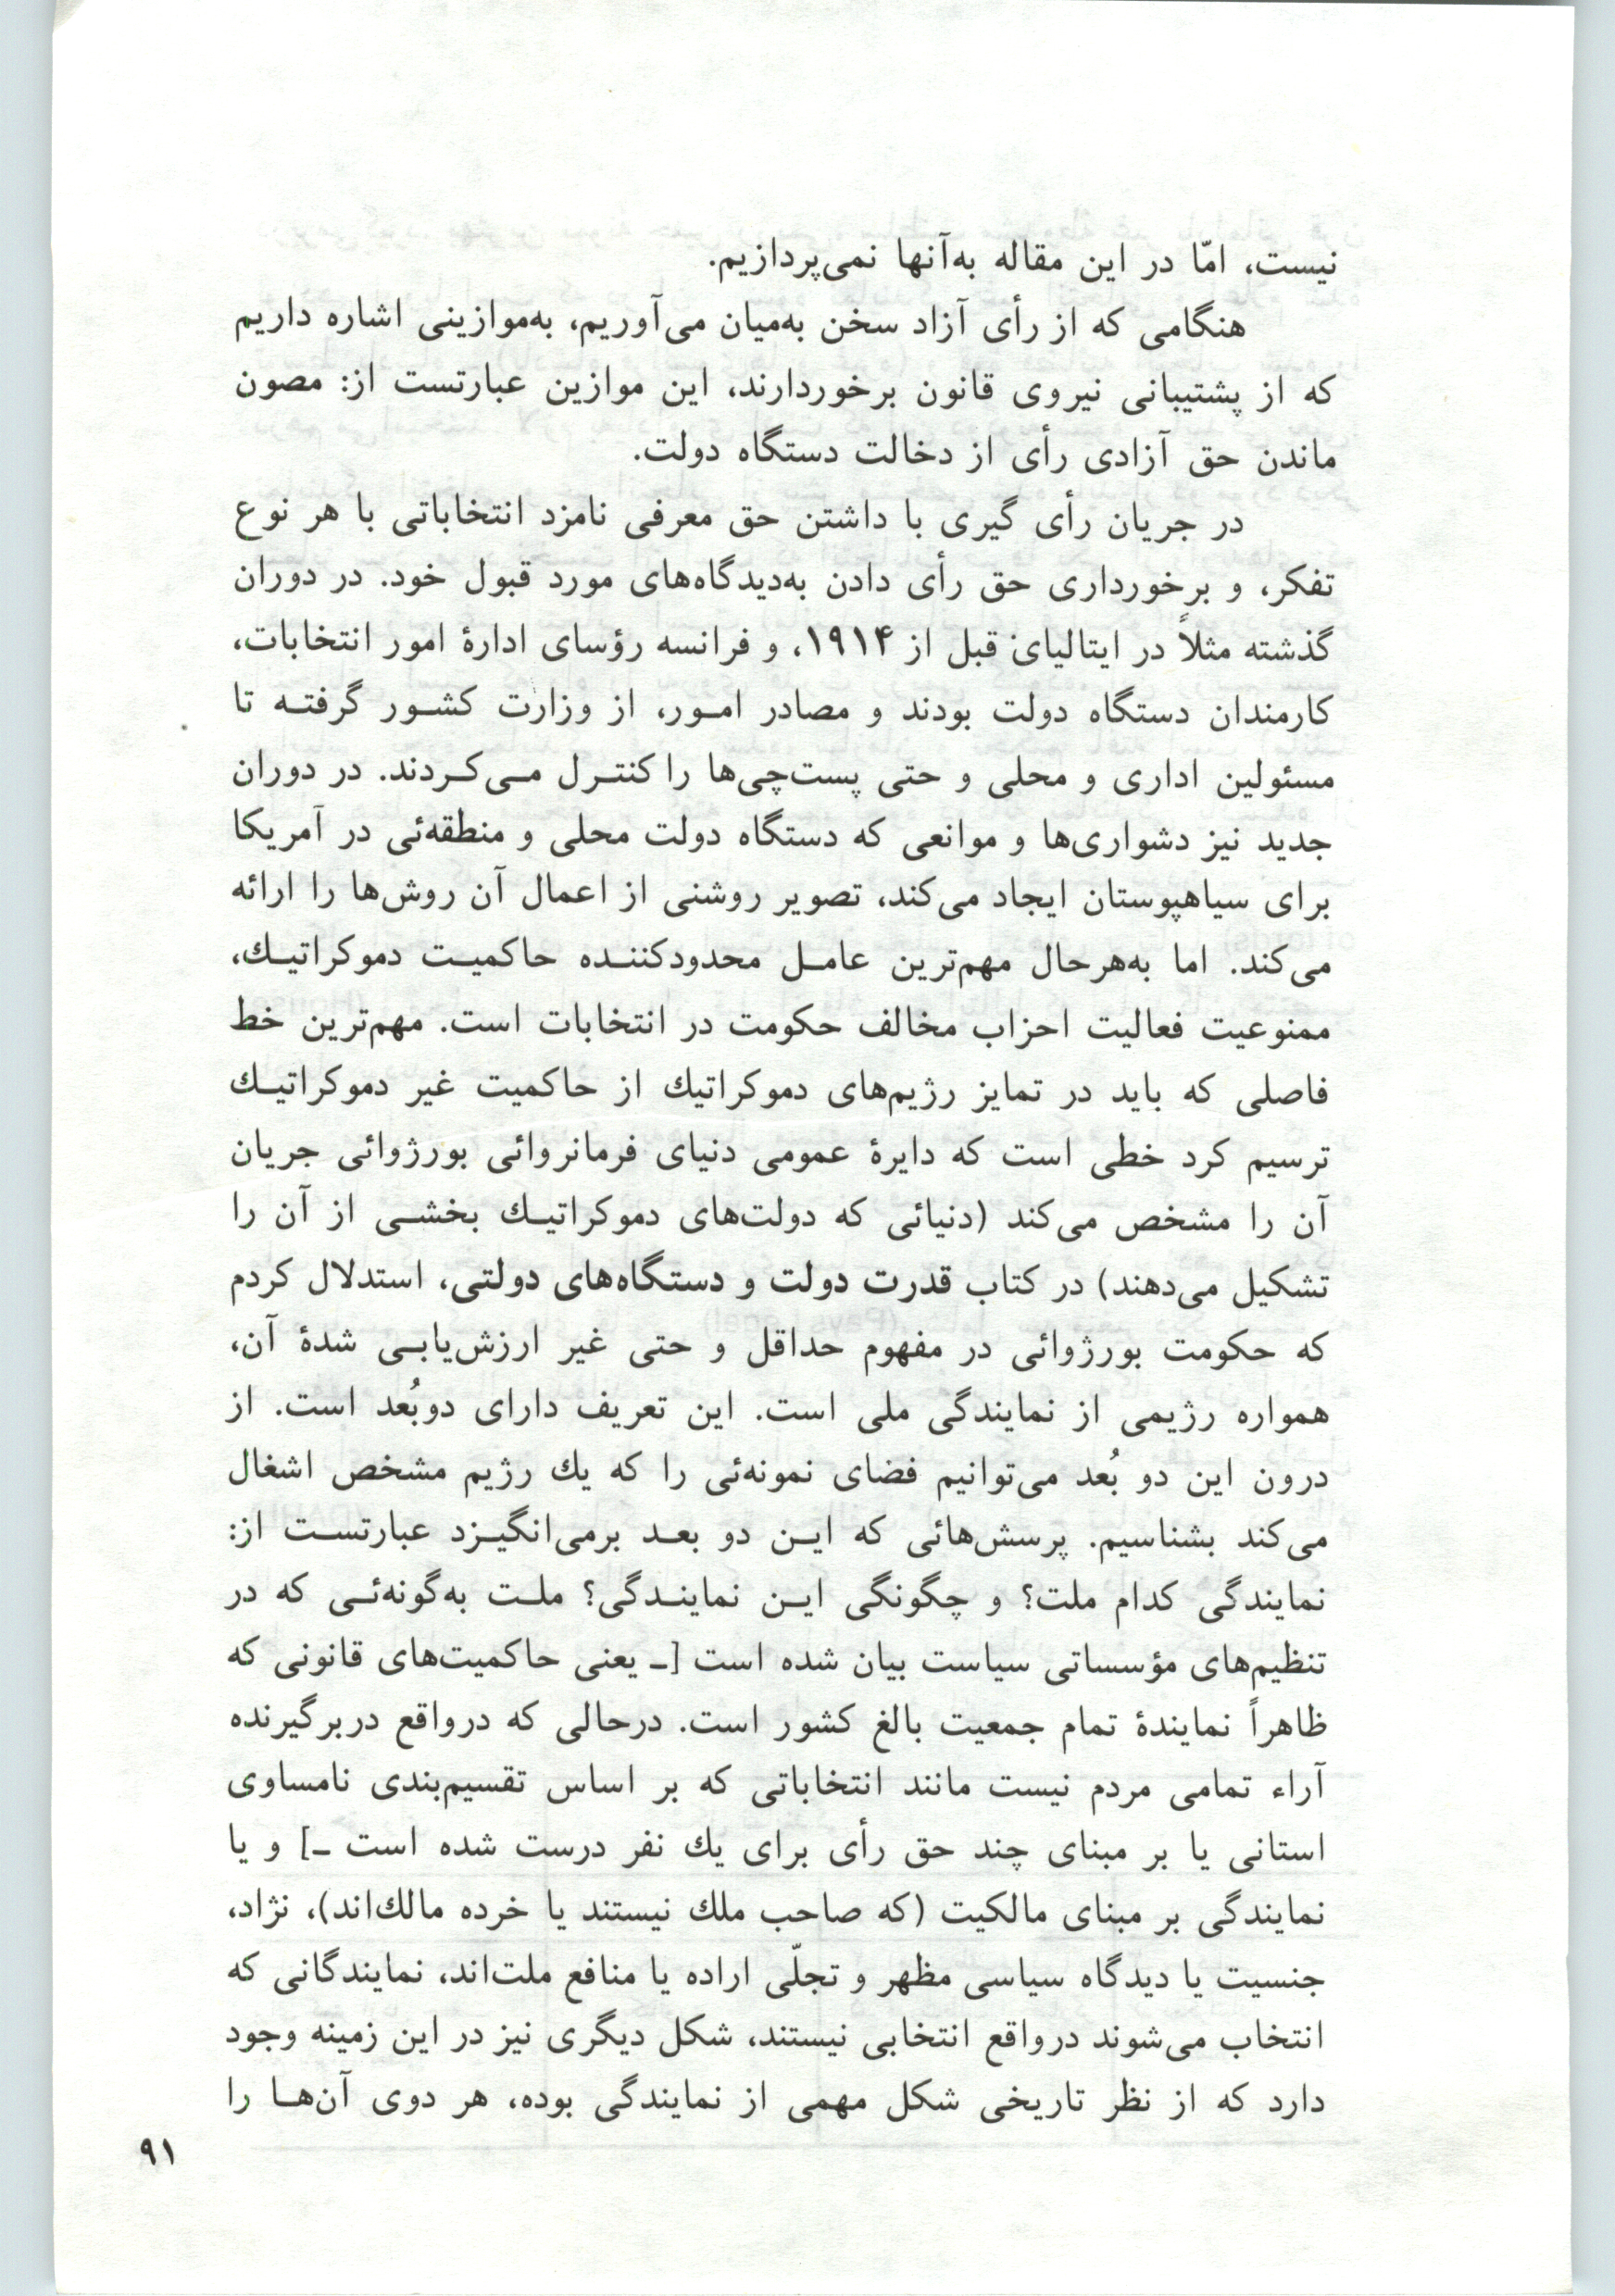 نیست، امّا در این مقاله به‌آنها نمی‌پردازیم.
هنگامی که از رأی آزاد سخن به‌میان می‌آوریم، به‌موازینی اشاره داریم
که از پشتیبانی نیروی قانون برخوردارند، این موازین عبارتست از: مصون
ماندن حق آزادی رأی از دخالت دستگاه دولت.
در جریان رأی گیری با داشتن حق معرفی نامزد انتخاباتی با هر نوع
تفکر، و برخورداری حق رأی دادن به‌دیدگاه‌های مورد قبول خود. در دوران
گذشته مثلاً در ایتالیای قبل از ۱۹۱۴، و فرانسه رؤسای ادارهٔ امور انتخابات،
کارمندان دستگاه دولت بودند و مصادر امـور، از وزارت کشـور گرفتـه تا
مسئولین اداری و محلی و حتی پست‌چی‌ها را کنتـرل مـی‌کـردند. در دوران
جدید نیز دشواری‌ها و موانعی که دستگاه دولت محلی و منطقه‌ئی در آمریکا
برای سیاهپوستان ایجاد می‌کند، تصویر روشنی از اعمال آن روش‌ها را ارائه
می‌کند. اما به‌هرحال مهم‌ترین عامـل محدودکننـده حاکمیـت دموکراتیـك،
ممنوعیت فعالیت احزاب مخالف حکومت در انتخابات است. مهم‌ترین خط
فاصلی که باید در تمایز رژیم‌های دموکراتیك از حاکمیت غیر دموکراتیـك
ترسیم کرد خطی است که دایرهٔ عمومی دنیای فرمانروائی بورژوائی جریان
آن را مشخص می‌کند (دنیائی که دولت‌های دموکراتیـك بخشـی از آن را
تشکیل می‌دهند) در کتاب قدرت دولت و دستگاه‌های دولتی، استدلال کردم
که حکومت بورژوائی در مفهوم حداقل و حتی غیر ارزش‌یابـی شدهٔ آن،
همواره رژیمی از نمایندگی ملی است. این تعریف دارای دوبُعد است. از
درون این دو بُعد می‌توانیم فضای نمونه‌ئی را که یك رژیم مشخص اشغال
می‌کند بشناسیم. پرسش‌هائی که ایـن دو بعـد برمی‌انگیـزد عبارتسـت از:
نمایندگی کدام ملت؟ و چگونگی ایـن نماینـدگی؟ ملـت به‌گونه‌ئـی که در
تنظیم‌های مؤسساتی سیاست بیان شده است [ـ یعنی حاکمیت‌های قانونی که
ظاهراً نمایندهٔ تمام جمعیت بالغ کشور است. درحالی که درواقع دربرگیرنده
آراء تمامی مردم نیست مانند انتخاباتی که بر اساس تقسیم‌بندی نامساوی
استانی یا بر مبنای چند حق رأی برای یك نفر درست شده است ـ] و یا
نمایندگی بر مبنای مالکیت (که صاحب ملك نیستند یا خرده مالك‌اند)، نژاد،
جنسیت یا دیدگاه سیاسی مظهر و تجلّی اراده یا منافع ملت‌اند، نمایندگانی که
انتخاب می‌شوند درواقع انتخابی نیستند، شکل دیگری نیز در این زمینه وجود
دارد که از نظر تاریخی شکل مهمی از نمایندگی بوده، هر دوی آن‌هـا را
۹۱